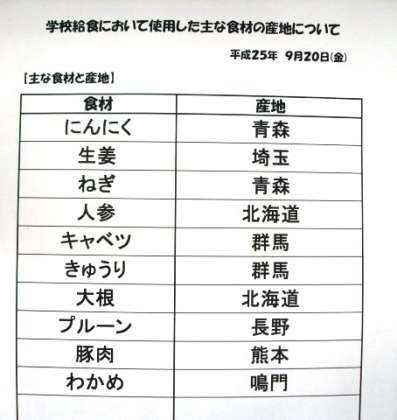 学校給食において使用した主な食材の産地について
平成25年 9月20日(金)
【主な食材と産地】
食材 産地
にんにく 青森
生姜 埼玉
ねぎ 青森
人参 北海道
キャベツ 群馬
きゅうり 群馬
大根 北海道
プルーン 長野
豚肉 熊本
わかめ 鳴門